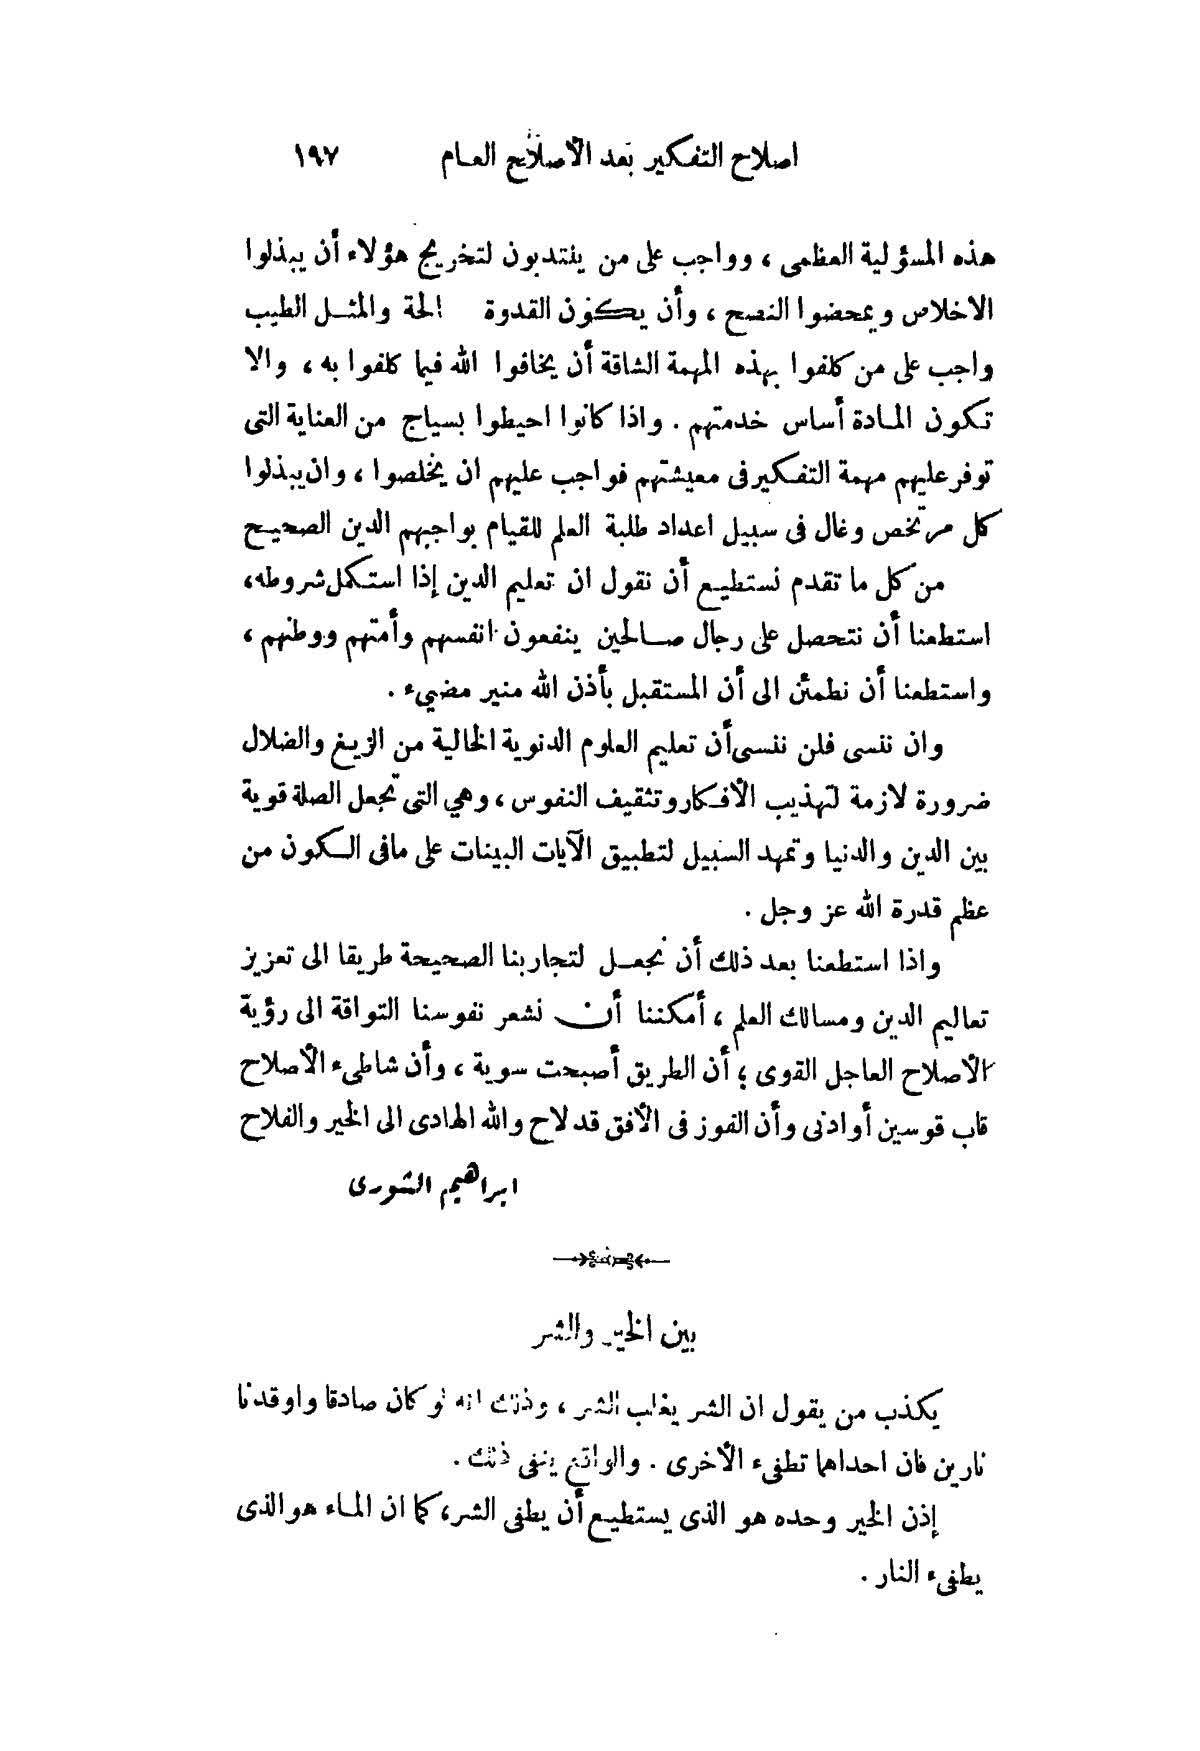 اصلاح التفكير بعد الأصلاح العام ١٩٧
هذه المسؤلية العظمى ، وواجب على من ينتدبون لتخريج هؤلاء أن يبذلوا
الاخلاص ويمحضوا النصح ، وأن يكون القدوة الحة والمثل الطيب
واجب على من كلفوا بهذه المهمة الشاقة أن يخافوا الله فيما كلفوا به ، والا
تكون المادة أساس خدمتهم . واذا كانوا احيطوا بسياج من العناية التى
توفر عليهم مهمة التفكير فى معيشتهم فواجب عليهم ان يخلصوا ، وان يبذلوا
كل مرتخص وغال فى سبيل اعداد طلبة العلم للقيام بواجبهم الدين الصحيح
من كل ما تقدم نستطيع أن نقول ان تعليم الدين إذا استكمل شروطه ،
استطعنا أن نتحصل على رجال صالحين ينفعون انفسهم وأمتهم ووطنهم ،
واستطعنا أن نطمئن الى أن المستقبل بأذن الله منير مضيء .
وان ننسى فلن ننسى أن تعليم العلوم الدنوية الخالية من الزيغ والضلال
ضرورة لازمة لتهذيب الأفكار وتثقيف النفوس ، وهي التى تجعل الصلة قوية
بين الدين والدنيا وتمهد السبيل لتطبيق الآيات البينات على مافى الكون من
عظم قدرة الله عز وجل .
واذا استطعنا بعد ذلك أن نجعل لتجاربنا الصحيحة طريقا الى تعزيز
تعاليم الدين ومسالك العلم ، أمكننا أن نشعر نفوسنا التواقة الى رؤية
الأصلاح العاجل القوى ؛ أن الطريق أصبحت سوية ، وأن شاطىء الأصلاح
قاب قوسين أوادنى وأن الفوز فى الأفق قد لاح والله الهادى الى الخير والفلاح
ابراهيم الشورى
بين الخير والشر
يكذب من يقول ان الشر يغلب الشر ، وذلك انه لو كان صادقا واوقدنا
نارين فان احداهما تطفىء الأخرى . والواقع ينفى ذلك .
إذن الخير وحده هو الذى يستطيع أن يطفى الشر، كما ان الماء هو الذى
يطفىء النار .